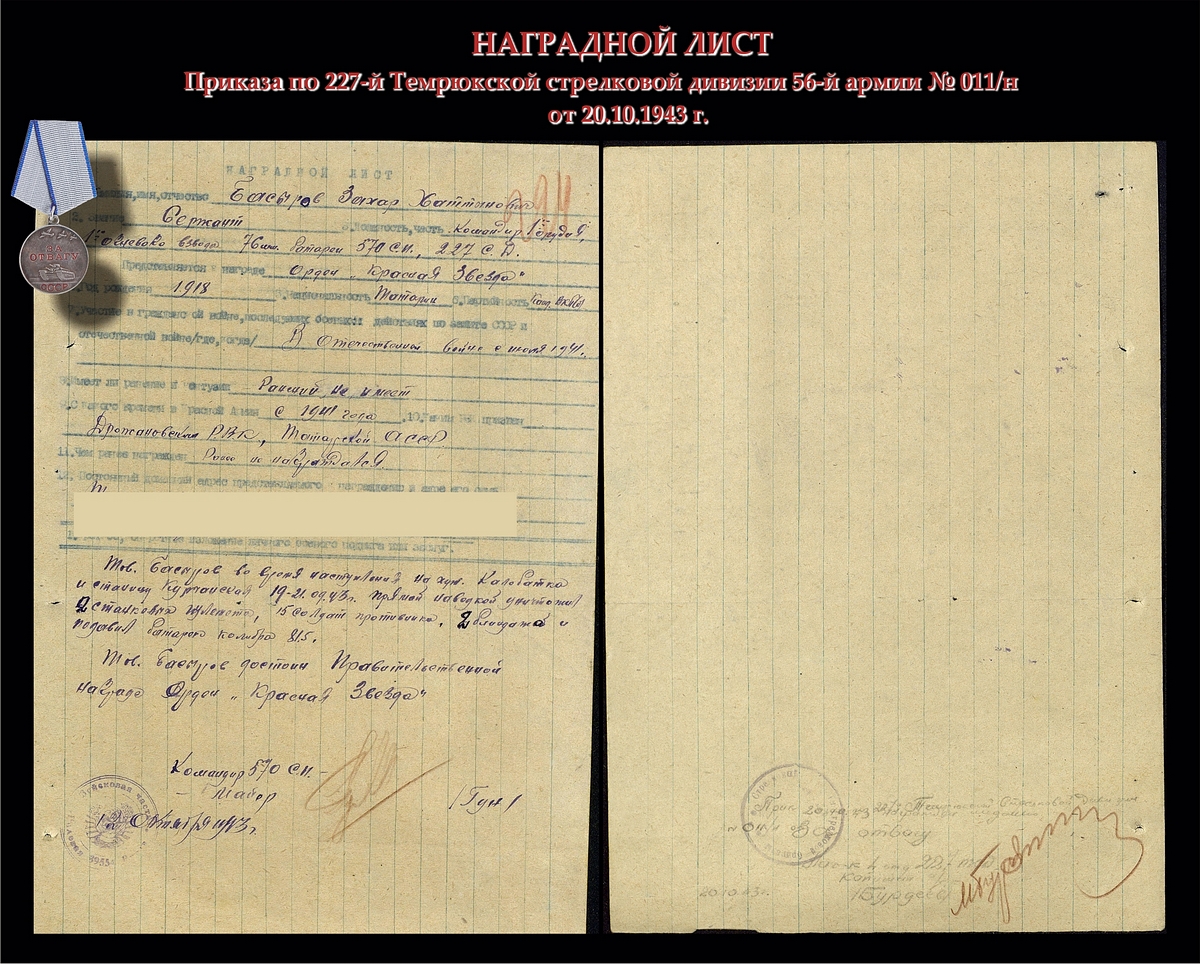 НАГРАДНОЙ ЛИСТ
Приказа по 227-й Темрюкской стрелковой дивизии 56-й армии № 011/н
от 20.10.1943 г.
ЗА
ОТВАГУ
СССР
НАГРАДНОЙ ЛИСТ
имя, отчество Басыров Захар Хаттынович
2. Звание Сержант 3. Должность, часть Командир 1 орудия,
1го огневого взвода 76мм. батареи 570 С.П., 227 С.Д.
Представляется к награде Орден „Красная Звезда"
Год рождения 1918 Национальность Татарин 6. Партийность Канд. ВКП(б)
7. Участие в гражданской войне, последующих боевых действиях по защите СССР и
отечественной войне/где, когда/ В Отечественной войне с июня 1941.
Имеет ли ранение и контузии Ранений не имеет
9. С какого времени в Красной Армии с 1941 года 10. Каким РВК призван
Дрожановским РВК, Татарской АССР
11. Чем ранее награжден Ранее не награждался
12. Постоянный домашний адрес представляемого к награждению и адрес его семьи
изложение личного боевого подвига или заслуг.
Тов. Басыров во время наступления на хут. Калабатка
и станицу Курчанская 19-21.09.43г. прямой наводкой уничтожил
2 станковых пулемета, 15 солдат противника, 2 блиндажа и
подавил батарею калибра 81,5.
Тов. Басыров достоин Правительственной
награде Орден „Красная Звезда"
Командир 570 С.П. –
– Майор /Гун/
12 Октября 1943г.
Прик 20.10.43 227 Темрюкской Стрелковой дивизии
№ 011/н За отвагу
Капитан
20.10.43г. /Бурдеев